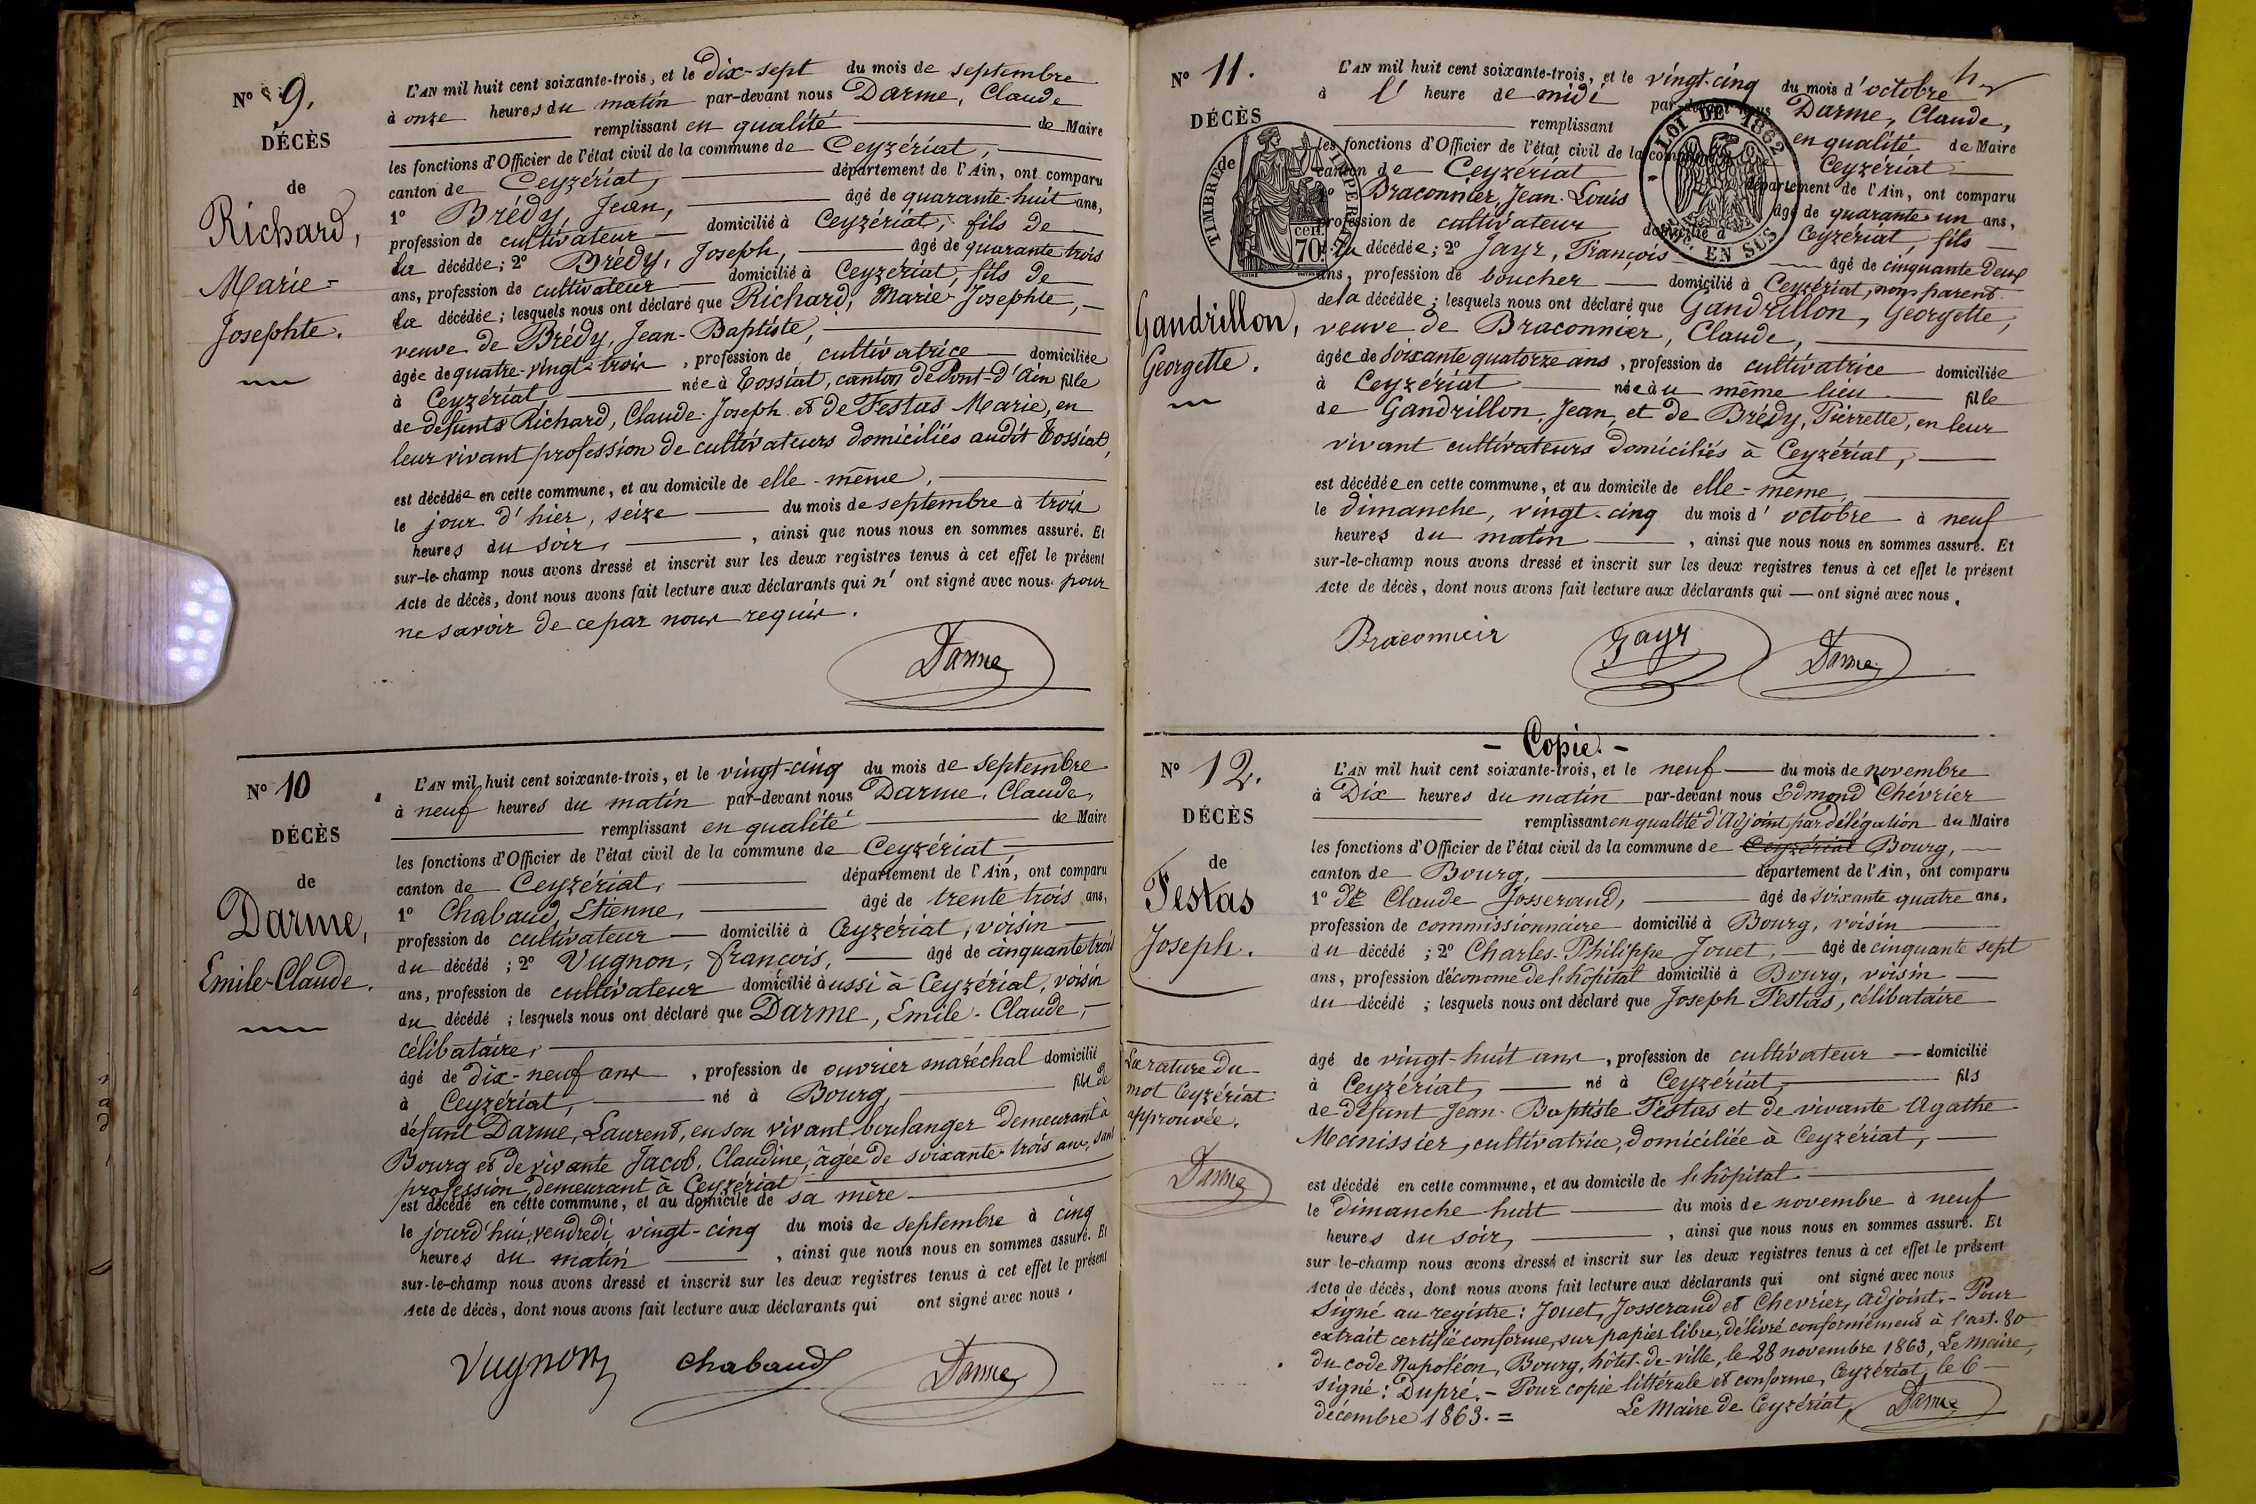 N° 9.
DÉCÈS
de
Richard,
Marie-
Josephte.
L'AN mil huit cent soixante-trois, et le dix-sept du mois de septembre
à onze heures du matin par-devant nous Darme, Claude
remplissant en qualité de Maire
les fonctions d'Officier de l'état civil de la commune de Ceyzériat,
canton de Ceyzériat, département de l'Ain, ont comparu
1° Brédy, Jean, âgé de quarante-huit ans,
profession de cultivateur domicilié à Ceyzériat, fils de
la décédée; 2° Brédy, Joseph, âgé de quarante trois
ans, profession de cultivateur domicilié à Ceyzériat, fils de
la décédée; lesquels nous ont déclaré que Richard, Marie-Josephte,
veuve de Brédy, Jean-Baptiste,
âgée de quatre-vingt-trois, profession de cultivatrice domiciliée
à Ceyzériat, née à Tossiat, canton de Pont-d'Ain fille
de défunts Richard, Claude-Joseph et de Festas Marie, en
leur vivant profession de cultivateurs domiciliés audit Tossiat,
est décédée en cette commune, et au domicile de elle-même,
le jour d'hier, seize du mois de septembre à trois
heures du soir, , ainsi que nous nous en sommes assuré. Et
sur-le-champ nous avons dressé et inscrit sur les deux registres tenus à cet effet le présent
Acte de décès, dont nous avons fait lecture aux déclarants qui n' ont signé avec nous pour
ne savoir de ce par nous requis.
Darme
N° 10
DÉCÈS
de
Darme,
Emile-Claude.
L'AN mil huit cent soixante-trois, et le vingt-cinq du mois de septembre
à neuf heures du matin par-devant nous Darme, Claude,
remplissant en qualité de Maire
les fonctions d'Officier de l'état civil de la commune de Ceyzériat,
canton de Ceyzériat, département de l'Ain, ont comparu
1° Chabaud, Etienne, âgé de trente trois ans,
profession de cultivateur domicilié à Ceyzériat, voisin
du décédé; 2° Vugnon, françois, âgé de cinquante trois
ans, profession de cultivateur domicilié aussi à Ceyzériat, voisin
du décédé; lesquels nous ont déclaré que Darme, Emile-Claude,
célibataire,
âgé de dix-neuf ans, profession de ouvrier maréchal domicilié
à Ceyzériat, né à Bourg, fils de
défunt Darme, Laurent, en son vivant boulanger demeurant à
Bourg et de vivante Jacob, Claudine, âgée de soixante-trois ans, sans
profession, demeurant à Ceyzériat
est décédé en cette commune, et au domicile de sa mère
le jourd'hui, vendredi, vingt-cinq du mois de septembre à cinq
heures du matin , ainsi que nous nous en sommes assuré. Et
sur-le-champ nous avons dressé et inscrit sur les deux registres tenus à cet effet le présent
Acte de décès, dont nous avons fait lecture aux déclarants qui ont signé avec nous.
Vugnon Chabaud Darme
N° 11.
DÉCÈS
TIMBRE IMPERIAL
70 cen.
LOI DE 1862
EN SUS
Gandrillon,
Georgette.
L'AN mil huit cent soixante-trois, et le vingt-cinq du mois d'octobre
à l' heure de midi par-devant nous Darme, Claude,
remplissant en qualité de Maire
les fonctions d'Officier de l'état civil de la commune Ceyzériat
canton de Ceyzériat département de l'Ain, ont comparu
1° Braconnier, Jean-Louis âgé de quarante-un ans,
profession de cultivateur domicilié à Ceyzériat, fils
de la décédée; 2° Jayr, François âgé de cinquante deux
ans, profession de boucher domicilié à Ceyzériat, non parent
de la décédée; lesquels nous ont déclaré que Gandrillon, Georgette,
veuve de Braconnier, Claude,
âgée de soixante quatorze ans, profession de cultivatrice domiciliée
à Ceyzériat née au même lieu fille
de Gandrillon, Jean, et de Brédy, Pierrette, en leur
vivant cultivateurs domiciliés à Ceyzériat,
est décédée en cette commune, et au domicile de elle-meme,
le dimanche, vingt-cinq du mois d'octobre à neuf
heures du matin , ainsi que nous nous en sommes assuré. Et
sur-le-champ nous avons dressé et inscrit sur les deux registres tenus à cet effet le présent
Acte de décès, dont nous avons fait lecture aux déclarants qui — ont signé avec nous.
Braconnier Jayr Darme
- Copie. -
N° 12.
DÉCÈS
de
Festas
Joseph.
La rature du
mot Ceyzériat
approuvée.
Darme
L'AN mil huit cent soixante-trois, et le neuf du mois de novembre
à Dix heures du matin par-devant nous Edmond Chevrier
remplissant en qualité d'Adjoint par délégation du Maire
les fonctions d'Officier de l'état civil de la commune de Ceyzériat Bourg,
canton de Bourg, département de l'Ain, ont comparu
1° Claude Josserand, âgé de soixante quatre ans,
profession de commissionnaire domicilié à Bourg, voisin
du décédé; 2° Charles-Philippe Jouet, âgé de cinquante sept
ans, profession d'économe de l'hôpital domicilié à Bourg, voisin
du décédé; lesquels nous ont déclaré que Joseph Festas, célibataire
âgé de vingt-huit ans, profession de cultivateur domicilié
à Ceyzériat, né à Ceyzériat, fils
de défunt Jean-Baptiste Festas et de vivante Agathe
Manissier, cultivatrice, domiciliée à Ceyzériat,
est décédé en cette commune, et au domicile de l'hôpital
le dimanche huit du mois de novembre à neuf
heures du soir, , ainsi que nous nous en sommes assuré. Et
sur-le-champ nous avons dressé et inscrit sur les deux registres tenus à cet effet le présent
Acte de décès, dont nous avons fait lecture aux déclarants qui ont signé avec nous
Signé au registre: Jouet, Josserand et Chevrier, adjoint. - Pour
extrait certifié conforme, sur papier libre, délivré conformément à l'art. 80
du code Napoléon, Bourg, hôtel-de-ville, le 28 novembre 1863, Le Maire,
signé: Dupré. - Pour copie littérale et conforme, Ceyzériat, le 6
décembre 1863. = Le Maire de Ceyzériat, Darme